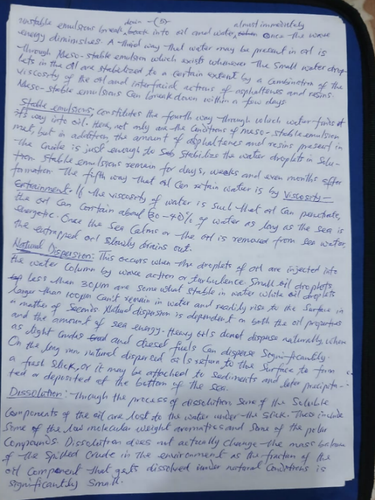 unstable emulsions break back into oil and water once the wave almost immediately
energy diminishes. A third way that water may be present in oil is
through Meso-stable emulsion which exists whenever the small water drop
lets in the oil are stabilized to a certain extent by a combination of the
viscosity of the oil and interfacial actions of asphaltenes and resins.
Meso-stable emulsions can break down within a few days.
Stable emulsions; Constitutes the fourth way through which water finds it
way into oil. Here, not only are the conditions of meso-stable emulsion
met but in addition the amount of asphaltenes and resins present in
the crude is just enough to stabilize the water droplets in solu-
tion stable emulsions remain for days, weeks and even months after
formation. The fifth way that oil can retain water is by Viscosity-
entrainment. If the viscosity of water is such that oil can penetrate,
the oil can contain about 30-40% of water as long as the sea is
energetic. Once the sea calms or the oil is removed from sea water,
the entrapped oil slowly drains out.
Natural Dispersion: This occurs when the droplets of oil are injected into
the water column by wave action or turbulence. Small oil droplets
less than 20μm are some what stable in water while oil droplets
larger than 100μm can't remain in water and readily rise to the surface in
a matter of seconds. Natural dispersion is dependent on both the oil properties
and the amount of sea energy. Heavy oils do not disperse naturally when
as light crudes and diesel fuels can disperse significantly.
On the long run natural dispersed oils return to the surface to form
a fresh slick, or it may be attached to sediments and later precipita-
ted or deposited at the bottom of the sea.
Dissolution:- Through the process of dissolution some of the soluble
components of the oil are lost to the water under the slick. These include
some of the low molecular weight aromatics and some of the polar
compounds. Dissolution does not actually change the mass balance
of the spilled crude in the environment as the fraction of the
oil component that gets dissolved under natural conditions is
significantly small.